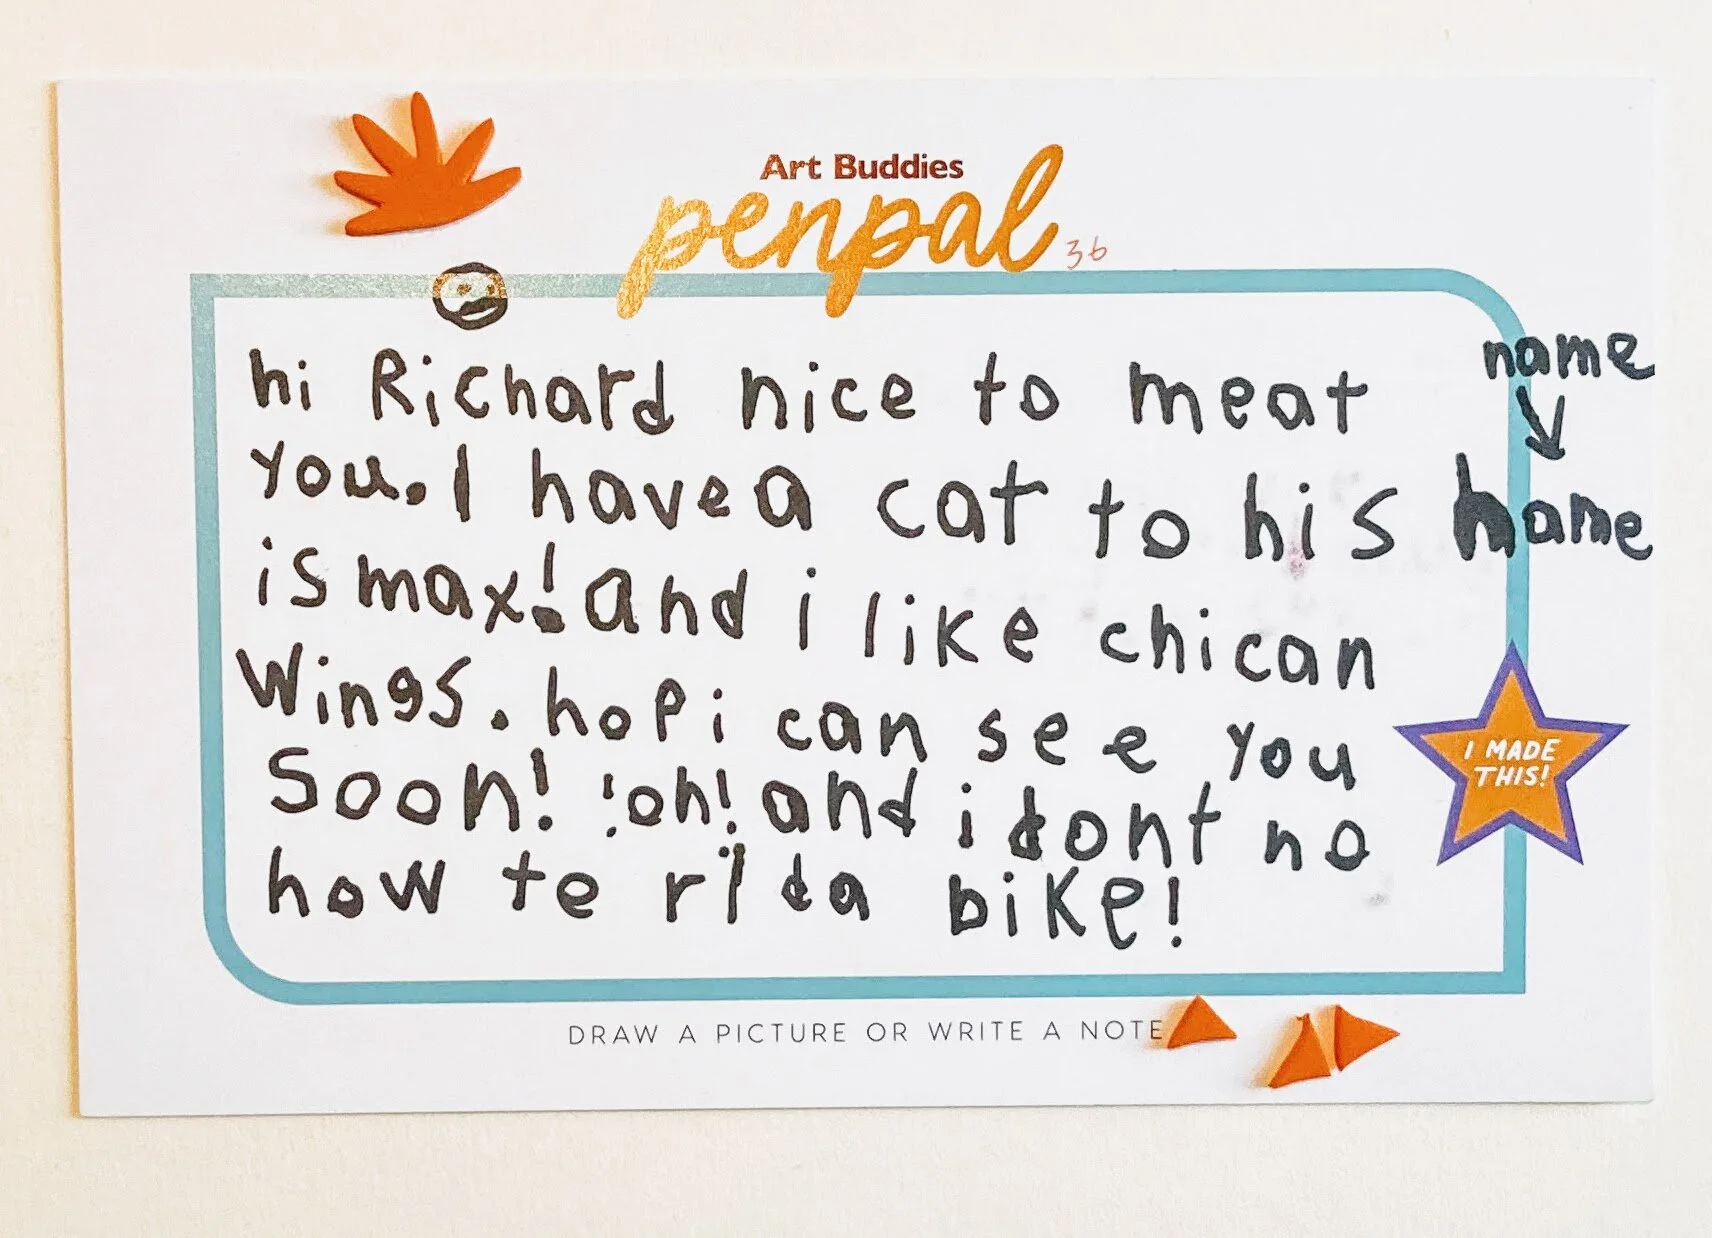 Art Buddies
penpal
36
hi Richard nice to meat
name
you. I have a cat to his name
is max! and i like chican
Wings. hop i can see you
Soon! !oh! and i dont no
how te rid a bike!
I MADE
THIS!
DRAW A PICTURE OR WRITE A NOTE